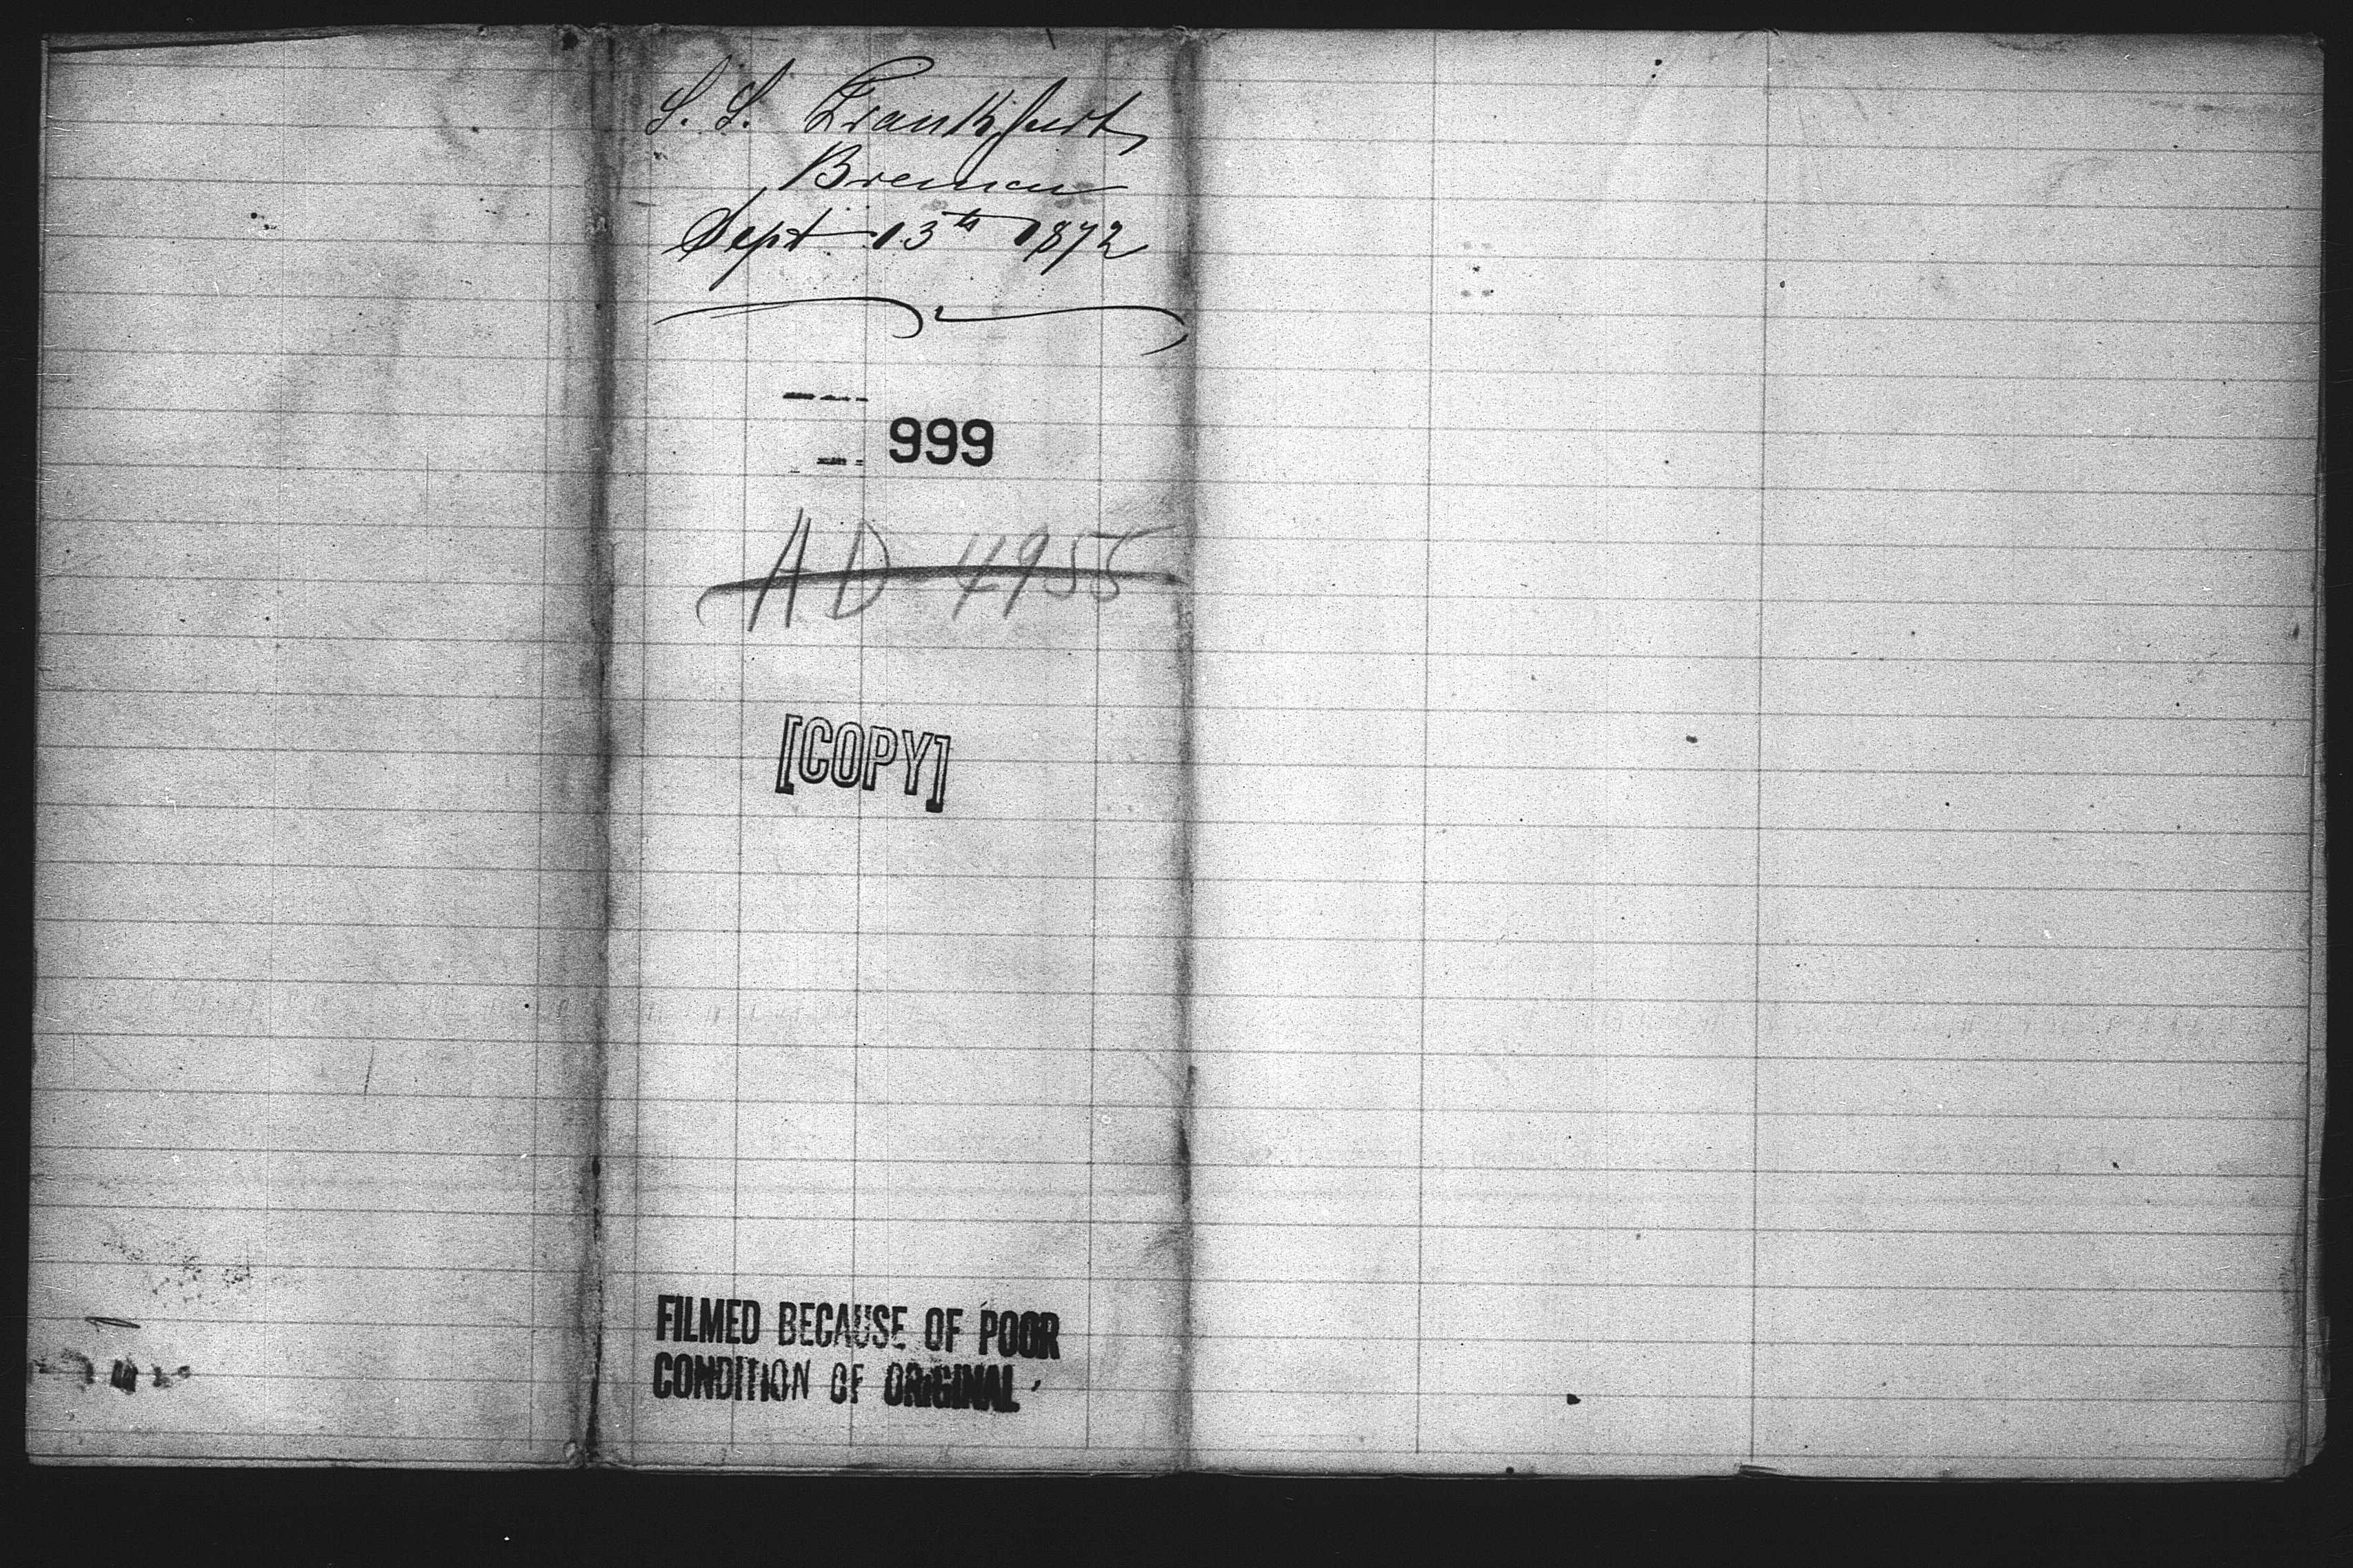 S. S. Frankfurt,
Bremen
Sept 13th 1872
999
AD 4955
[COPY]
FILMED BECAUSE OF POOR
CONDITION OF ORIGINAL